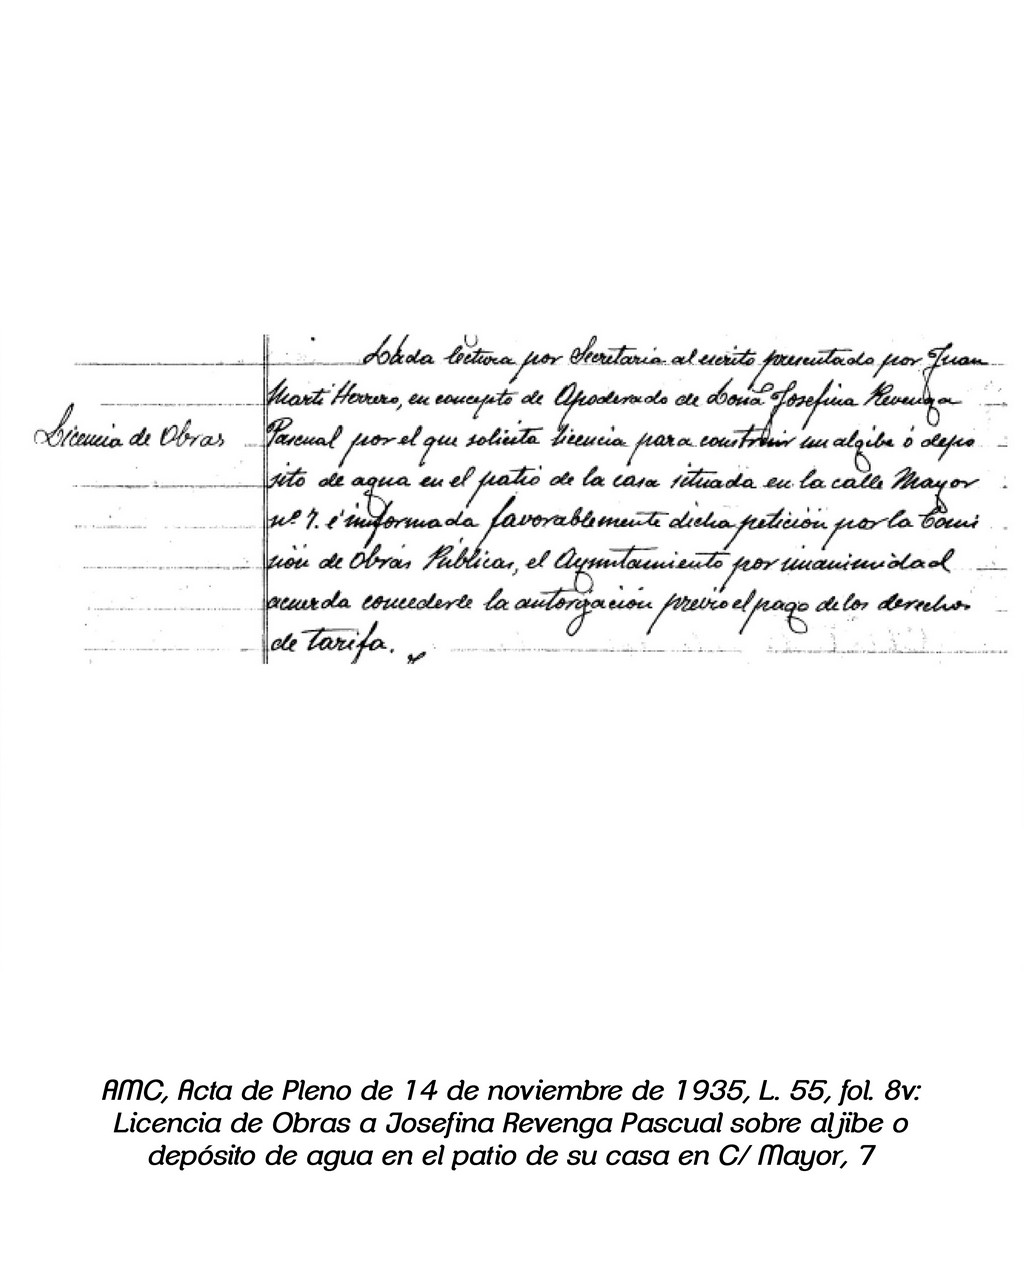 Dada lectura por Secretaria al escrito presentado por Juan
Marti Herrero, en concepto de Apoderado de Doña Josefina Revenga
Licencia de Obras
Pascual por el que solicita licencia para construir un algibe ó depo
sito de agua en el patio de la casa situada en la calle Mayor
nº 7. é informada favorablemente dicha petición por la Comi
sión de Obras Públicas, el Ayuntamiento por unanimidad
acuerda concederle la autorización previo el pago de los derechos
de tarifa.
AMC, Acta de Pleno de 14 de noviembre de 1935, L. 55, fol. 8v:
Licencia de Obras a Josefina Revenga Pascual sobre aljibe o
depósito de agua en el patio de su casa en C/ Mayor, 7